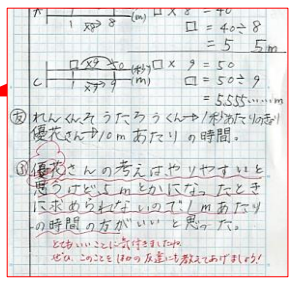 □ × 8 = 40
1 ×8→ 8 (m) □ = 40÷8
= 5 5m
□ ×9 50 (秒) □ × 9 = 50
□ = 50÷9
1 ×9→ 9 (m)
= 5.555……m
れんくんとうたろうくん→1秒あたりのきょり
優花さん→10mあたりの時間。
優花さんの考えはやりやすいと
思うけど5mとかになったとき
に求められないので1mあたり
の時間の方がいいと思った。
とてもいいことに気付きましたね。
ぜひ、このことをほかの友達にも教えてあげましょう!